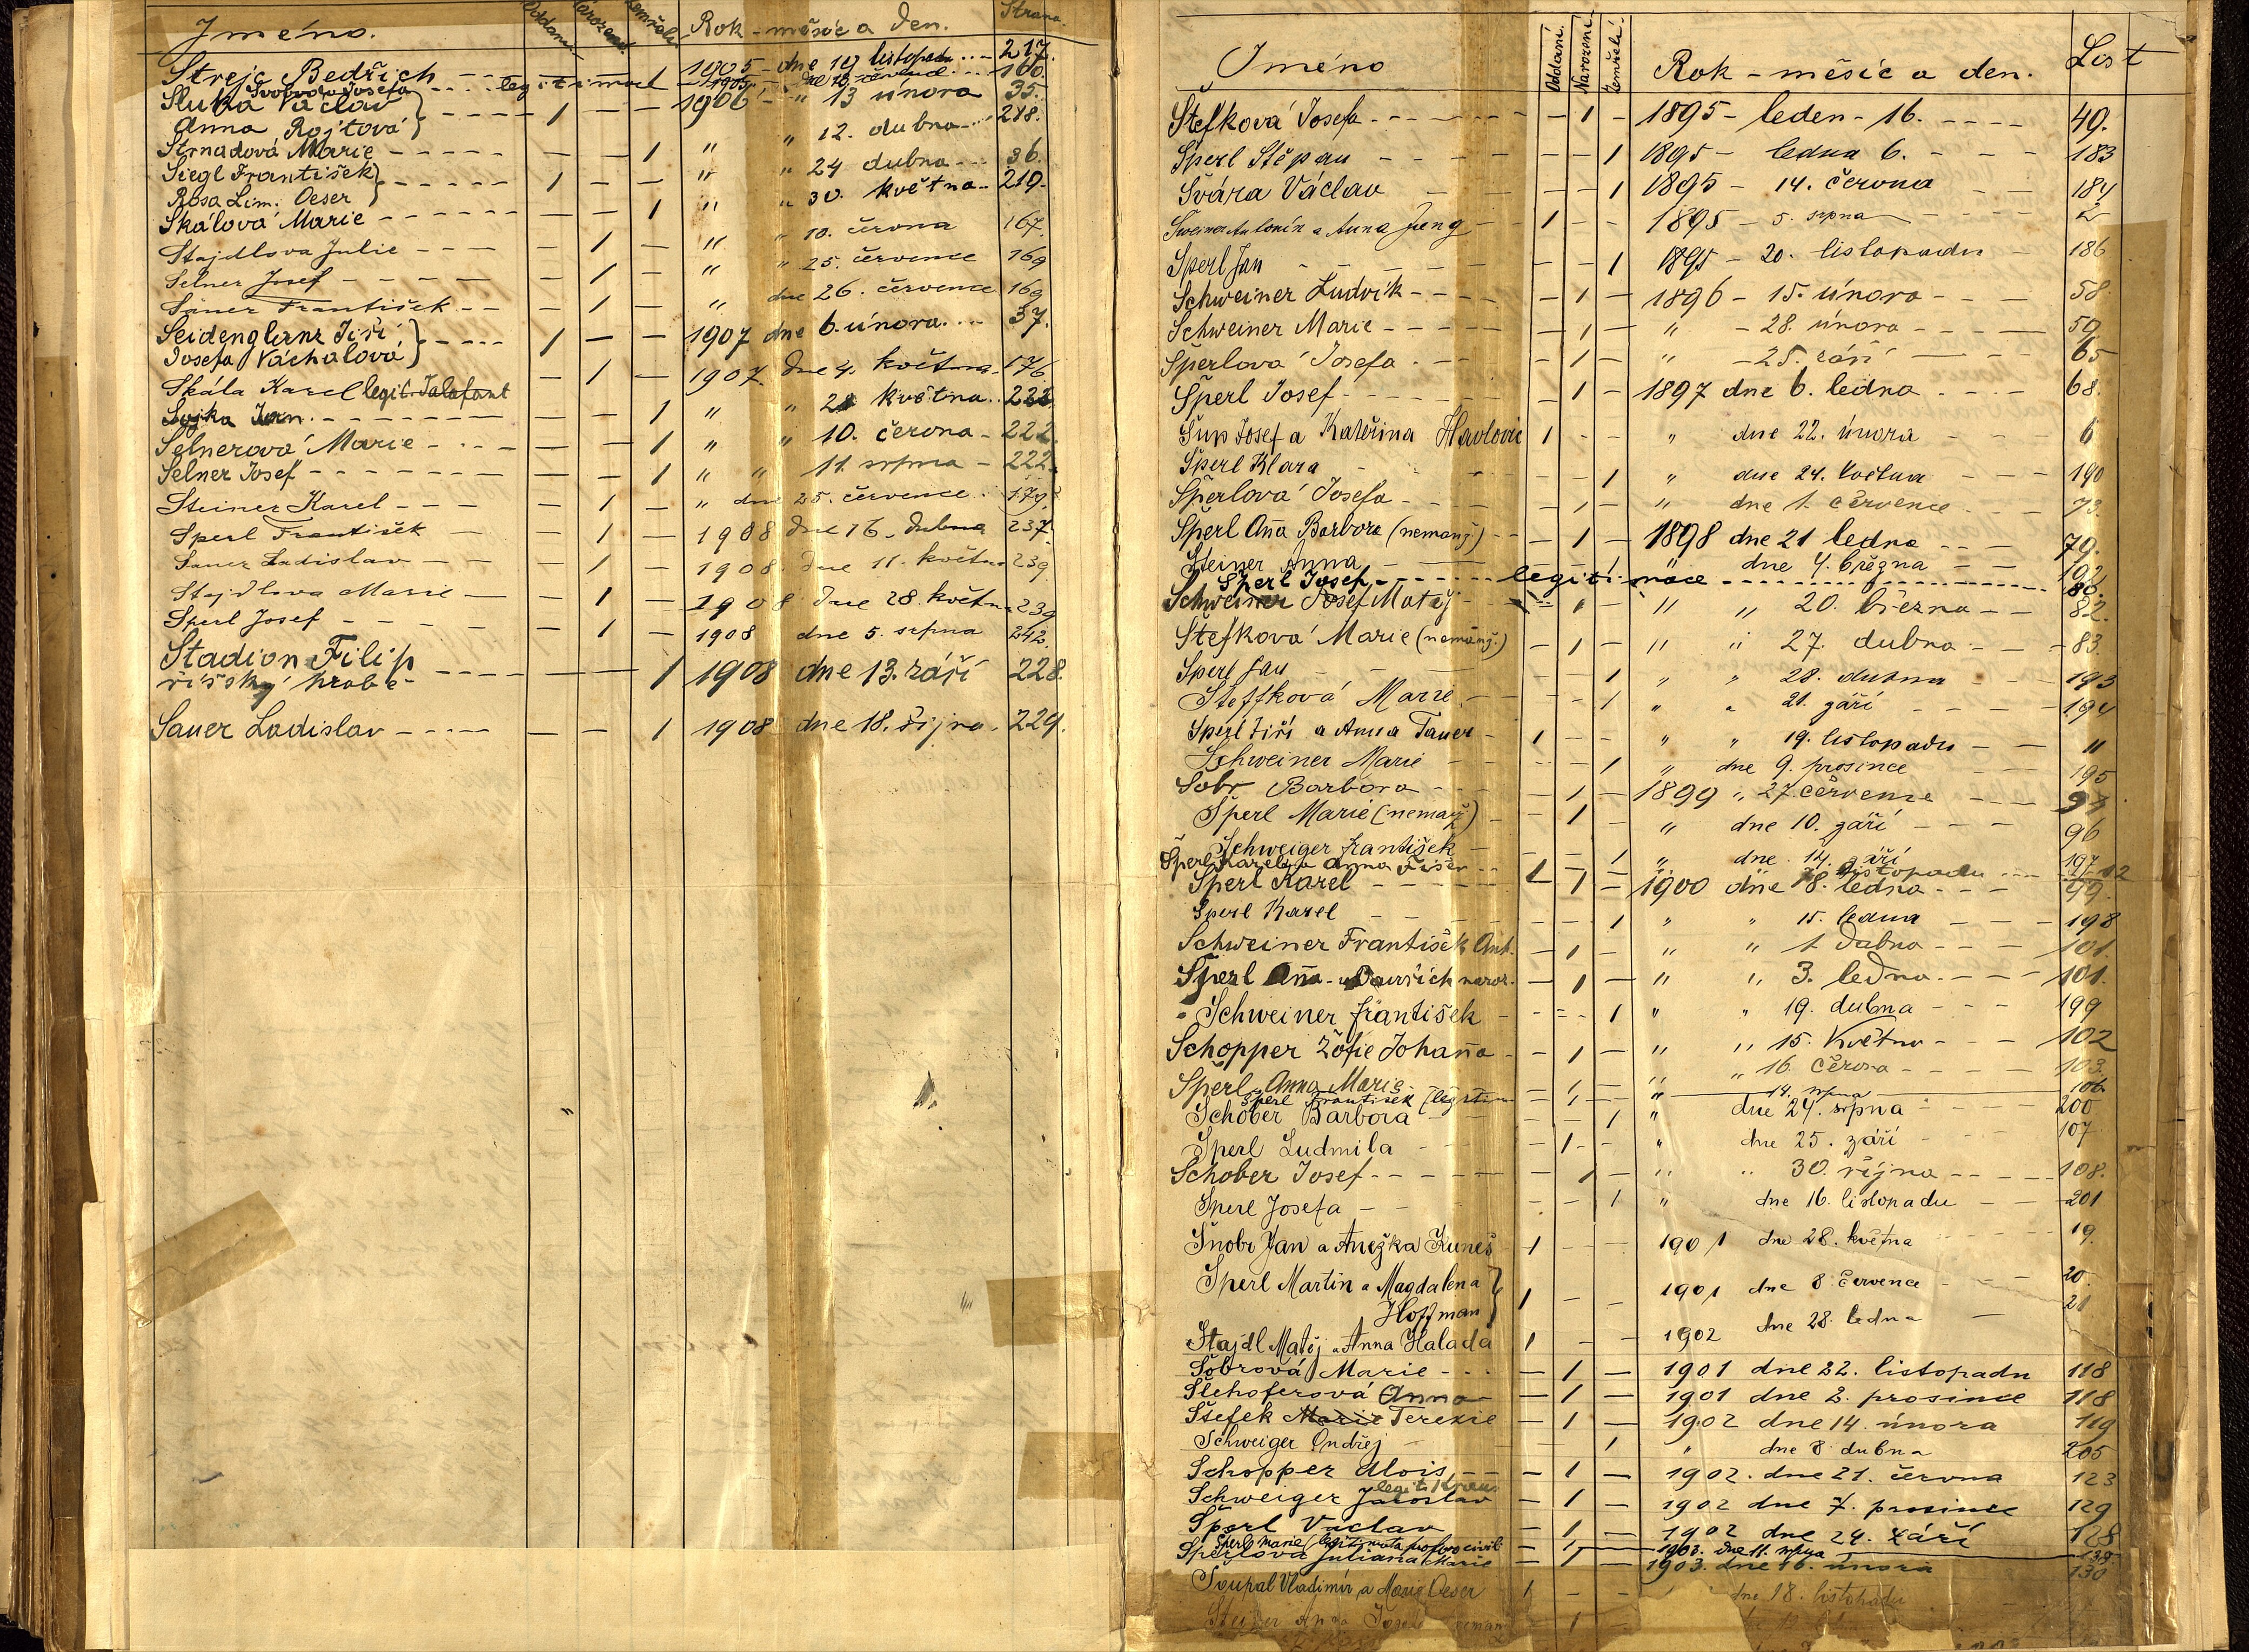 Jméno. Oddaní Narození Zemřelí Rok - měsíc a den. Strana.
Strejc Bedřich 1905 - dne 19 listopadu 217.
Svoboda Josefa legitimat 1905 160.
Sluka Václav 1906 - " 13 února 35.
Anna Rojtová
Strnadová Marie - - 1 " " 12. dubna 218.
Siegl František 1 - - " " 24 dubna 36.
Rosa Lim. Oeser
Skálová Marie - - 1 " " 30. května 219.
Stajdlova Julie - 1 - " " 10. června 167.
Selner Josef - 1 - " " 25. července 169
Sauer František - 1 - " dne 26. července 169
Seidenglanz Jiří 1 - - 1907 dne 6. února 37.
Josefa Váchalová
Skála Karel legit. - 1 - 1907. dne 4. května 176
Sojka Jan - - 1 " " května
Selnerová Marie - - 1 " " 10. června - 222.
Selner Josef - - 1 " " 11. srpna - 222.
Steiner Karel - 1 - " dne 25. července 179.
Sperl František - 1 - 1908 dne 16. dubna 237.
Sauer Ladislav - 1 - 1908 dne 11. května 239
Stajdlova Marie - 1 - 1908 dne 28. května 239
Sperl Josef - 1 - 1908 dne 5. srpna 242.
Stadion Filip - - 1 1908 dne 13. září 228.
říšský hrabě
Sauer Ladislav - - 1 1908 dne 18. října 229.
Jméno Oddaní. Narození Zemřelí. Rok - měsíc a den. List
Štefková Josefa - 1 - 1895 - leden - 16. 49.
Šperl Štěpán - - 1 1895 - ledna 6. 183
Švára Václav - - 1 1895 - 14. června 184
Šweiner Antonín a Anna 1 - - 1895 - 5. srpna 2
Šperl Jan - - 1 1895 - 20. listopadu 186
Schweiner Ludvík - 1 - 1896 - 15. února 58
Schweiner Marie - 1 - " - 28. února 59
Šperlová Josefa - 1 - " - 25. září 65
Šperl Josef - 1 - 1897 dne 6. ledna 68.
Šup Josef a Kateřina Havlovic 1 - - " dne 22. února 6
Šperl Klara - - 1 " dne 24. května 190
Šperlová Josefa - 1 - " dne 1. července 73.
Šperl Anna Barbora (nemanž.) - 1 - 1898 dne 21 ledna 79.
Steiner Anna " dne 4. března 192
Šperl Josef legitimace 86.
Schweiner Josef Matěj - 1 - " " 20. března 82.
Štefková Marie (nemanž.) - 1 - " " 27. dubna 83.
Šperl Jan - - 1 " " 28. dubna 193
Šteffková Marie - - 1 " " 21. září 194
Šperl Jiří a Anna Tauer 1 - - " " 19. listopadu 11
Schweiner Marie - - 1 " dne 9. prosince 195
Šobr Barbora - 1 - 1899 " 27. července
Šperl Marie (nemanž) - 1 - " dne 10. září 96
Schweiger František - - 1 " dne 14. září 197
Šperl Karel a Anna Fišer 1 - - listopadu 12
Šperl Karel - 1 - 1900 dne 8. ledna 99.
Šperl Karel - - 1 " " 15. ledna 198
Schweiner František Ant. - 1 - " " 1 dubna 101.
Šperl Anna naroz. - 1 - " " 3. ledna 101.
Schweiner František - - 1 " " 19. dubna 199
Schopper Žofie Johanna - 1 - " " 15. května 102
Šperl Anna Marie - 1 - " " 16. června 103.
Šperl František (legitim - 1 - " 14. srpna 106.
Schober Barbora - - 1 " dne 24. srpna 200
Šperl Ludmila - 1 - " dne 25. září 107
Schober Josef - 1 - " " 30. října 108.
Šperl Josefa - - 1 " dne 16. listopadu 201
Šnobr Jan a Anežka Kuneš 1 - - 1901 dne 28. května 19.
Šperl Martin a Magdalena 1 - - 1901 dne 8. července 20.
Hoffman
Štajdl Matěj a Anna Halada 1 - - 1902 dne 28. ledna 21
Šobrová Marie - 1 - 1901 dne 22. listopadu 118
Šlehoferová Anna - 1 - 1901 dne 2. prosince 118
Štefek Marie Terezie - 1 - 1902 dne 14. února 119
Schweiger Ondřej - - 1 " dne 8 dubna 205
Schopper Alois - 1 - 1902. dne 21. června 123
Schweiger Jaroslav - 1 - 1902 dne 7. prosince 129
Šperl Václav - 1 - 1902 dne 24. září 128
Šperl Marie - 1 - 1903. dne 11. srpna
Šperlová Juliana Marie - 1 - 1903. dne 16. února 130
Šoupal Vladimír a Marie Oeser 1 - - dne 18. listopadu
Steiner Anna